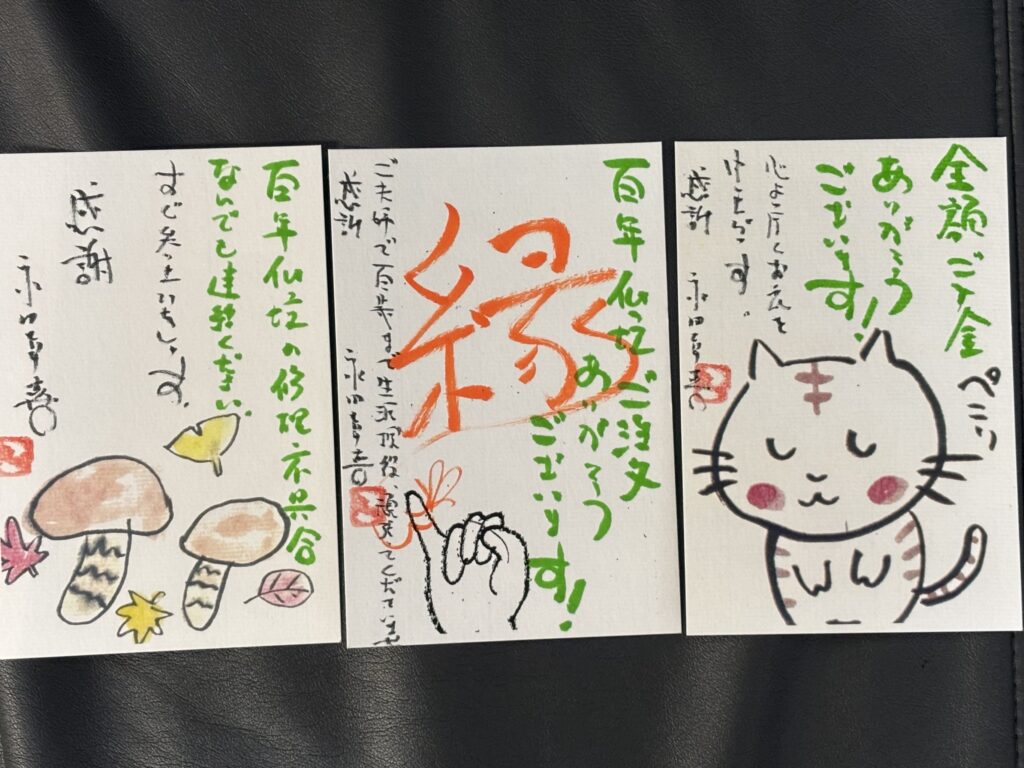 百年仏壇の修理不具合
なんでも連絡ください
すぐ参上いたします。
感謝
永田幸喜
百年仏壇ご注文
ありがとう
ございます!
縁
ご夫婦で百歳まで生涯現役、頑張ってくださいませ
感謝
永田幸喜
全額ご入金
ありがとう
ございます!
ぺこり
心より厚くお礼を
申し上げます
感謝
永田幸喜